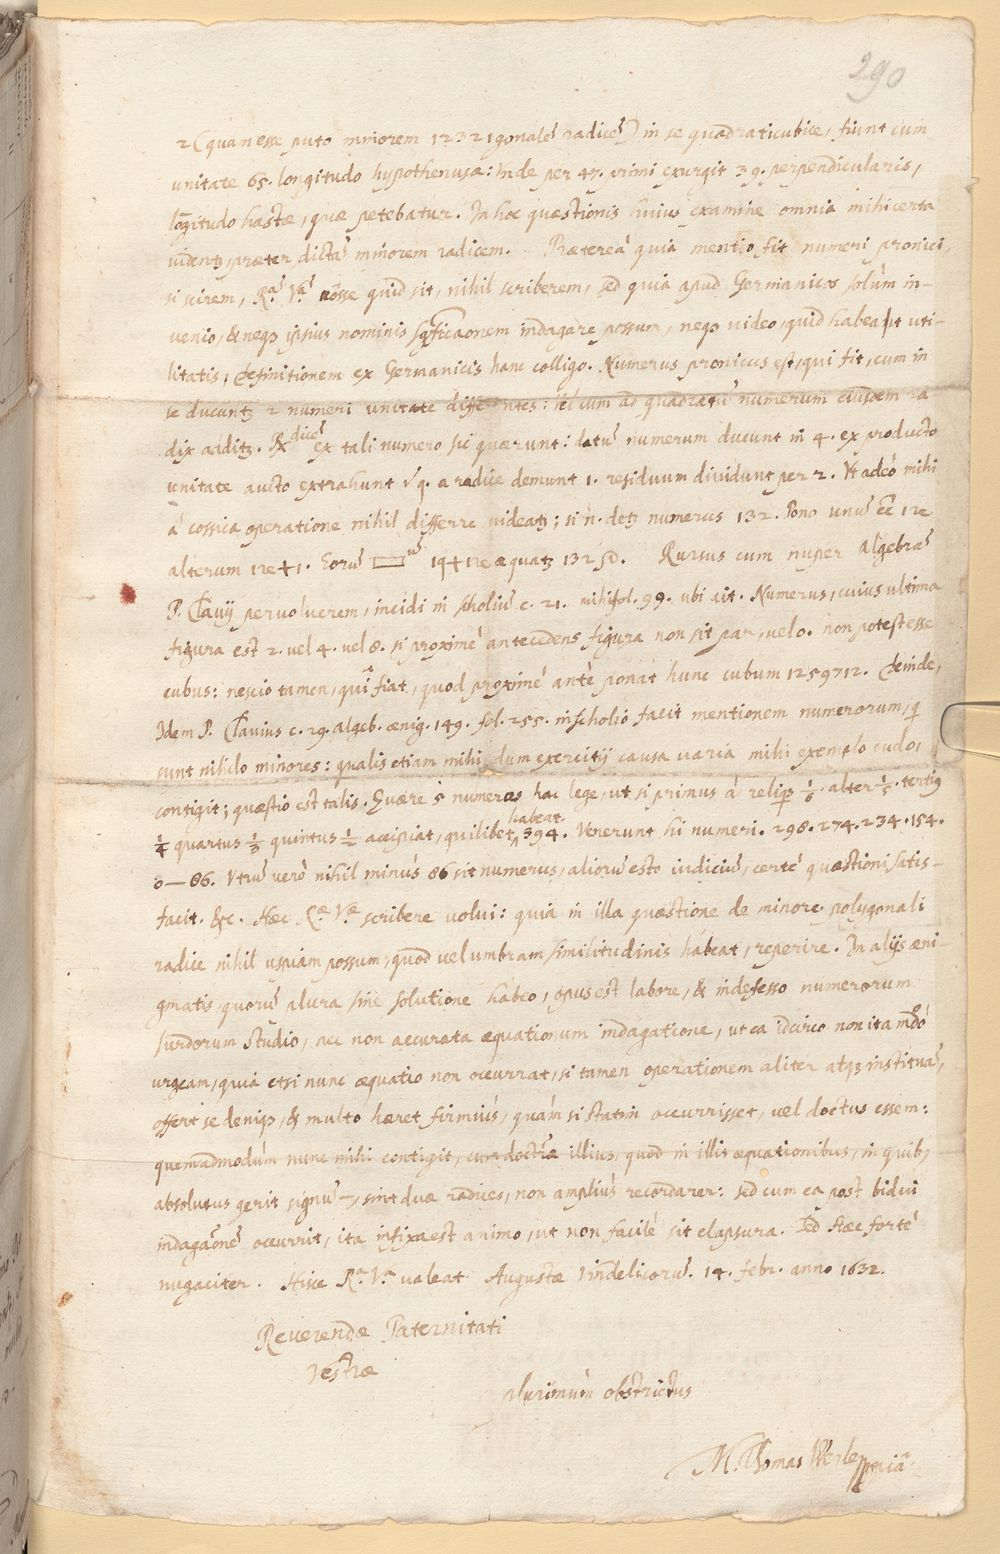 290
2 (quam esse puto minorem 12321gonalē radicē) in se quadraticubice, fiunt cum
unitate 65. longitudo hypothenusæ: Inde per 47. primi exurgit 39. perpendicularis,
lōgitudo hastæ, quæ petebatur. In hoc quæstionis huius examine omnia mihi certa
videntꝫ, præter dictā minorem radicem. Prætereà quia mentio fit numeri pronici,
si scirem, Rᵃ̄. Vᵃ̄. nosse quid sit, nihil scriberem, sed quia apud Germanicos solùm in-
venio, & neqꝫ ipsius nominis sig̅ficaōnem indagare possum, neqꝫ video, quid habeant uti-
litatis, definitionem ex Germanicis hanc colligo. Numerus pronicus est, qui fit, cum in
se ducuntꝫ 2 numeri unitate differentes: vel cum ad quadratū numerum eiusdem ra
dix additꝫ. Rdicē ex tali numero sic quærunt: datū numerum ducunt in 4. ex producto
unitate aucto extrahunt √q. a radice demunt 1. residuum dividunt per 2. Ut adeò mihi
à cossica operatione nihil differre videatꝫ; si n̄. detꝫ numerus 132. Pono unū eē 1℞
alterum 1℞+1. Eorū ▭ū 1q+1℞ æquatꝫ 132 . Rursus cum nuper Algebrā
P. Clavij pervolverem, incidi in scholiū c. 21. mihi fol. 99. ubi ait. Numerus, cuius ultima
figura est 2. vel 4. vel 8. si proximè antecedens figura non sit par, vel 0. non potest esse
cubus: nescio tamen, quī fiat, quod proximè antè ponat hunc cubum 1259712. deinde,
Idem P. Clavius c. 29. algeb. ænig. 149. fol. 255. in scholio facit mentionem numerorum, q̄
sunt nihilo minores: qualis etiam mihi dum exercitij causa varia mihi exempla cudo,
contigit; quæstio est talis. Quære 5 numeros hac lege, ut si primus à reliq̄s 1/6. alter 1/5. tertiꝰ
1/4 quartus 1/3 quintus 1/2 accipiat, quilibet habeat 394. Venerunt hi numeri. 298. 274. 234. 154.
0—86. Utrū verò nihil minùs 86 sit numerus, aliorū esto iudiciū, certè quæstioni satis-
facit. &c. Hæc Rᵃ̄ Vᵃ̄ scribere volui: quià in illa quæstione de minore polygonali
radice nihil uspiàm possum, quod vel umbram similitudinis habeat, reperire. In alijs æni-
gmatis, quorū plura sine solutione habeo, opus est labore, & indefesso numerorum
surdorum studio, nec non accurata æquationum indagatione, ut ea idcirco non ita mōdò
urgeam, quià etsi nunc æquatio non occurrat, si tamen operationem aliter atqꝫ instituā,
offert se deniqꝫ, & multo hæret firmiùs, quàm si statim occurrisset, vel doctus essem:
quemadmodùm nunc mihi contigit, cum doctrīæ illius, quod in illis æquationibus, in quibꝫ
absolutus gerit signū —, sint duæ radices, non ampliùs recordarer: sed cum ea post bidui
indagaōnē occurrit, ita infixa est animo, ut non facilè sit elapsura. Sed hæc fortè
nugaciter. Hisce Rᵃ Vᵃ valeat Augustæ Vindelicorū. 14. febr. anno 1632.
Reverendæ Paternitati
Vestræ
plurimùm obstrictus
M. Thomas